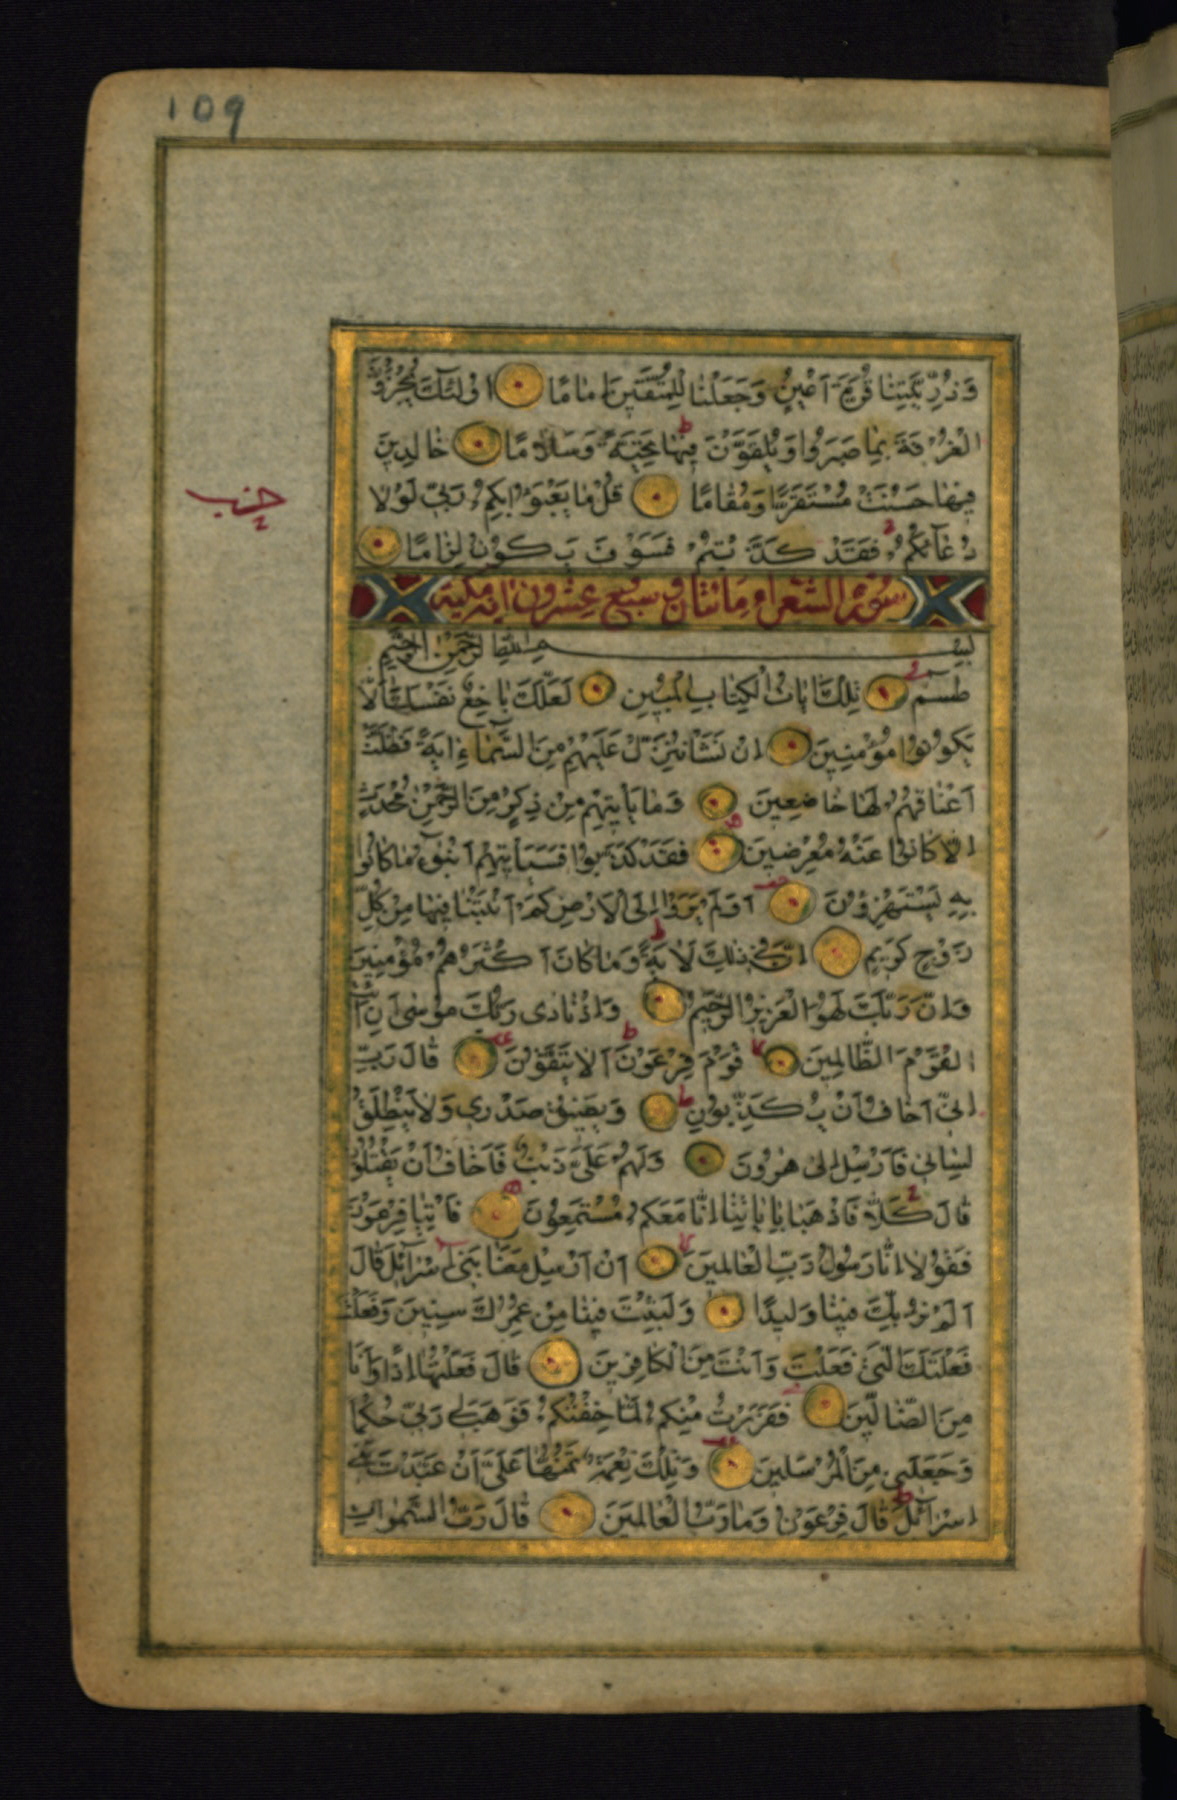 109
وَذُرِّيَّتِنَا قُرَّةَ اَعْيُنٍ وَجَعَلْنَا لِلْمُتَّقِينَ اِمَامًا اُولٰئِكَ يُجْزَوْنَ
الْغُرْفَةَ بِمَا صَبَرُوا وَيُلَقَّوْنَ فِيهَا تَحِيَّةً وَسَلَامًا خَالِدِينَ
فِيهَا حَسُنَتْ مُسْتَقَرًّا وَمُقَامًا قُلْ مَا يَعْبَؤُا بِكُمْ رَبِّي لَوْلَا
حزب
دُعَآؤُكُمْ فَقَدْ كَذَّبْتُمْ فَسَوْفَ يَكُونُ لِزَامًا
سورة الشعراء مائتان و سبع عشرون اية مكية
بِسْمِ اللّٰهِ الرَّحْمٰنِ الرَّحِيمِ
طسٓمٓ تِلْكَ اٰيَاتُ الْكِتَابِ الْمُبِينِ لَعَلَّكَ بَاخِعٌ نَفْسَكَ اَلَّا
يَكُونُوا مُؤْمِنِينَ اِنْ نَشَأْ نُنَزِّلْ عَلَيْهِمْ مِنَ السَّمَآءِ اٰيَةً فَظَلَّتْ
اَعْنَاقُهُمْ لَهَا خَاضِعِينَ وَمَا يَأْتِيهِمْ مِنْ ذِكْرٍ مِنَ الرَّحْمٰنِ مُحْدَثٍ
اِلَّا كَانُوا عَنْهُ مُعْرِضِينَ فَقَدْ كَذَّبُوا فَسَيَأْتِيهِمْ اَنْبٰؤُا مَا كَانُوا
بِهِ يَسْتَهْزِؤُنَ اَوَلَمْ يَرَوْا اِلَى الْاَرْضِ كَمْ اَنْبَتْنَا فِيهَا مِنْ كُلِّ
زَوْجٍ كَرِيمٍ اِنَّ فِي ذٰلِكَ لَاٰيَةً وَمَا كَانَ اَكْثَرُهُمْ مُؤْمِنِينَ
وَاِنَّ رَبَّكَ لَهُوَ الْعَزِيزُ الرَّحِيمُ وَاِذْ نَادٰى رَبُّكَ مُوسٰى اَنِ ائْتِ
الْقَوْمَ الظَّالِمِينَ قَوْمَ فِرْعَوْنَ اَلَا يَتَّقُونَ قَالَ رَبِّ
اِنِّي اَخَافُ اَنْ يُكَذِّبُونِ وَيَضِيقُ صَدْرِي وَلَا يَنْطَلِقُ
لِسَانِي فَاَرْسِلْ اِلٰى هٰرُونَ وَلَهُمْ عَلَيَّ ذَنْبٌ فَاَخَافُ اَنْ يَقْتُلُونِ
قَالَ كَلَّا فَاذْهَبَا بِاٰيَاتِنَا اِنَّا مَعَكُمْ مُسْتَمِعُونَ فَاْتِيَا فِرْعَوْنَ
فَقُولَا اِنَّا رَسُولُ رَبِّ الْعَالَمِينَ اَنْ اَرْسِلْ مَعَنَا بَنِي اِسْرَآئِلَ قَالَ
اَلَمْ نُرَبِّكَ فِينَا وَلِيدًا وَلَبِثْتَ فِينَا مِنْ عُمُرِكَ سِنِينَ وَفَعَلْتَ
فَعْلَتَكَ الَّتِي فَعَلْتَ وَاَنْتَ مِنَ الْكَافِرِينَ قَالَ فَعَلْتُهَا اِذًا وَاَنَا
مِنَ الضَّالِّينَ فَفَرَرْتُ مِنْكُمْ لَمَّا خِفْتُكُمْ فَوَهَبَ لِي رَبِّي حُكْمًا
وَجَعَلَنِي مِنَ الْمُرْسَلِينَ وَتِلْكَ نِعْمَةٌ تَمُنُّهَا عَلَيَّ اَنْ عَبَّدْتَ بَنِي
اِسْرَآئِلَ قَالَ فِرْعَوْنُ وَمَا رَبُّ الْعَالَمِينَ قَالَ رَبُّ السَّمٰوَاتِ